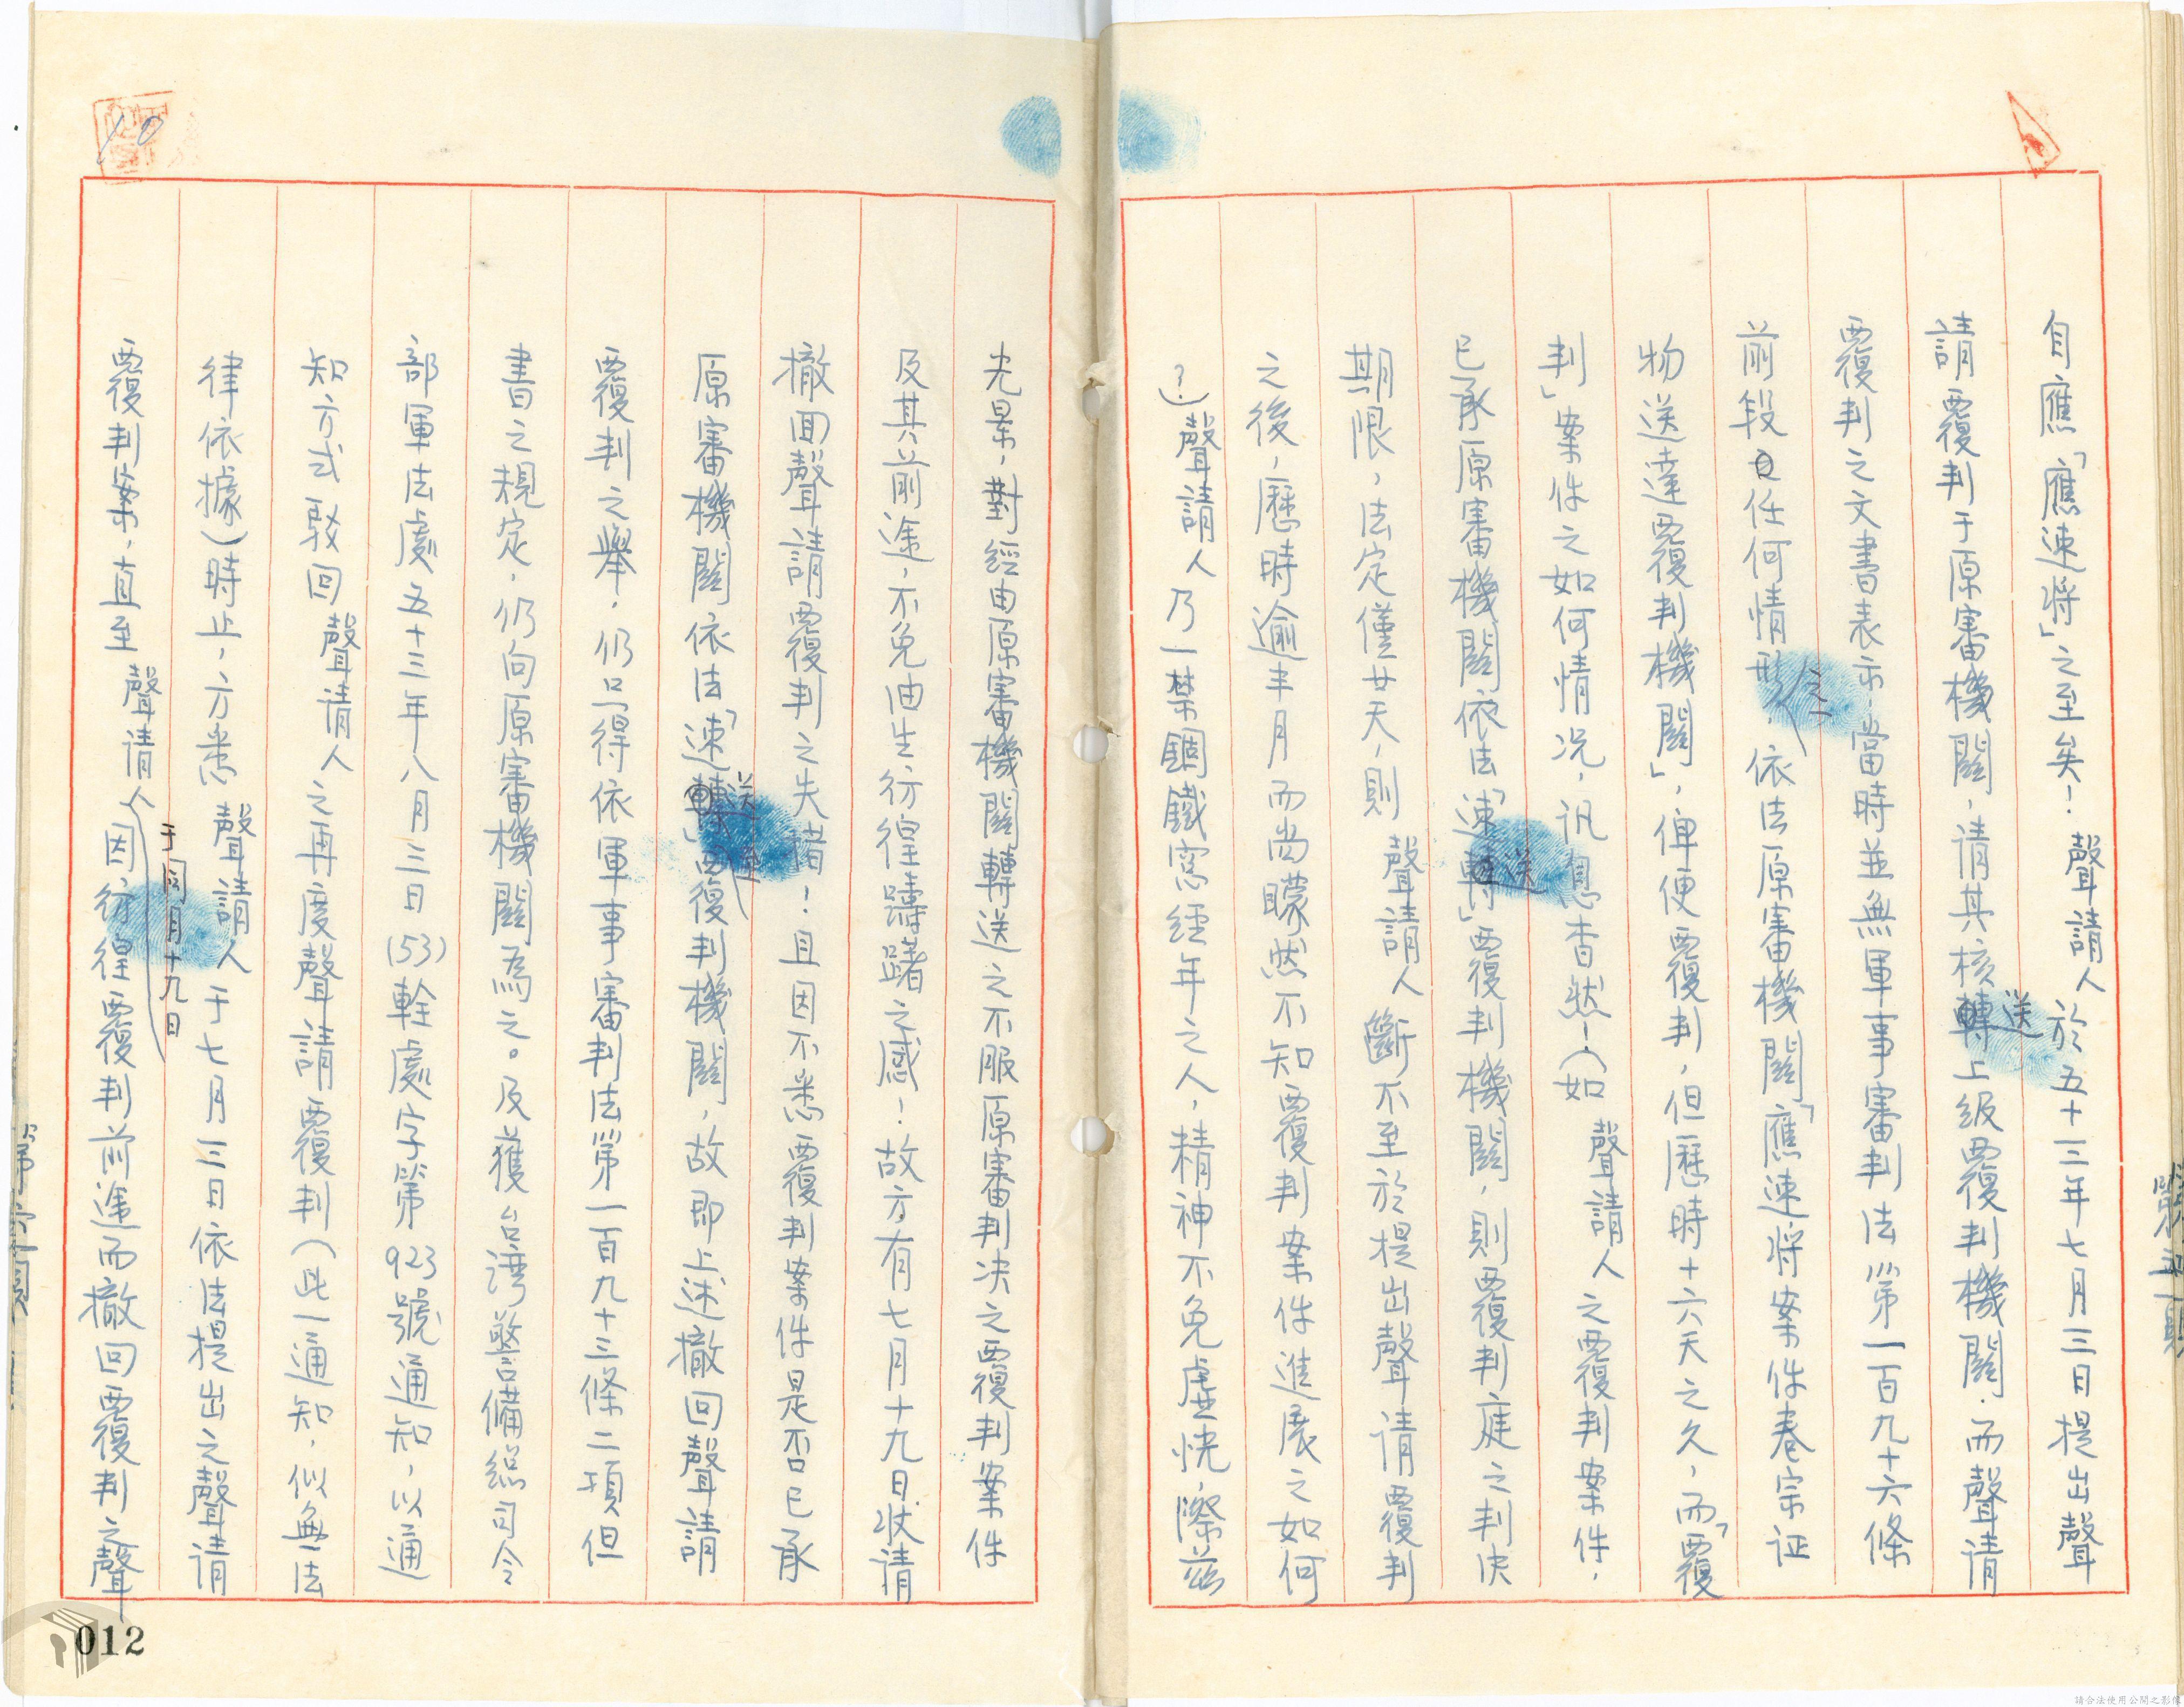 自應「應速將」之至矣！聲請人於五十三年七月三日提出聲
請覆判于原審機關，请其核轉送上級覆判機關．而聲請
覆判之文書表示．當時並無軍事審判法第一百九十六條
前段之任何情形．依法原審機關「應速將案件卷宗证
物送達覆判機關」，俾便覆判，但歷時十六天之久，而「覆
判」案件之如何情况，讯息杳然！（如聲請人之覆判案件，
已承原審機關依法「速轉送」覆判機關，則覆判庭之判决
期限，法定僅廿天，則聲請人斷不至於提出聲请覆判
之後，歷時逾半月而尚矇然不知覆判案件進展之如何
？）聲請人乃一禁錮鐵窓經年之人，精神不免虛恍，際茲
光景，對經由原審機關轉送之不服原審判决之覆判案件
及其前途，不免由生彷徨躊躇之感！故方有七月十九日状请
撤回聲請覆判之失措！且因不悉覆判案件是否已承
原審機關依法「速轉送」至覆判機關，故即上述撤回聲請
覆判之舉，仍只得依軍事審判法第一百九十三條二項但
書之規定，仍向原審機關為之。及獲台湾警备總司令
部軍法處五十三年八月三日(53)輇處字第923號通知，以通
知方式駁回聲請人之再度聲請覆判（此一通知，似無法
律依據）時止，方悉聲請人于七月三日依法提出之聲请
覆判案，直至聲請人于同月十九日因彷徨覆判前途而撤回覆判之聲
10
012
請合法使用公開之影像